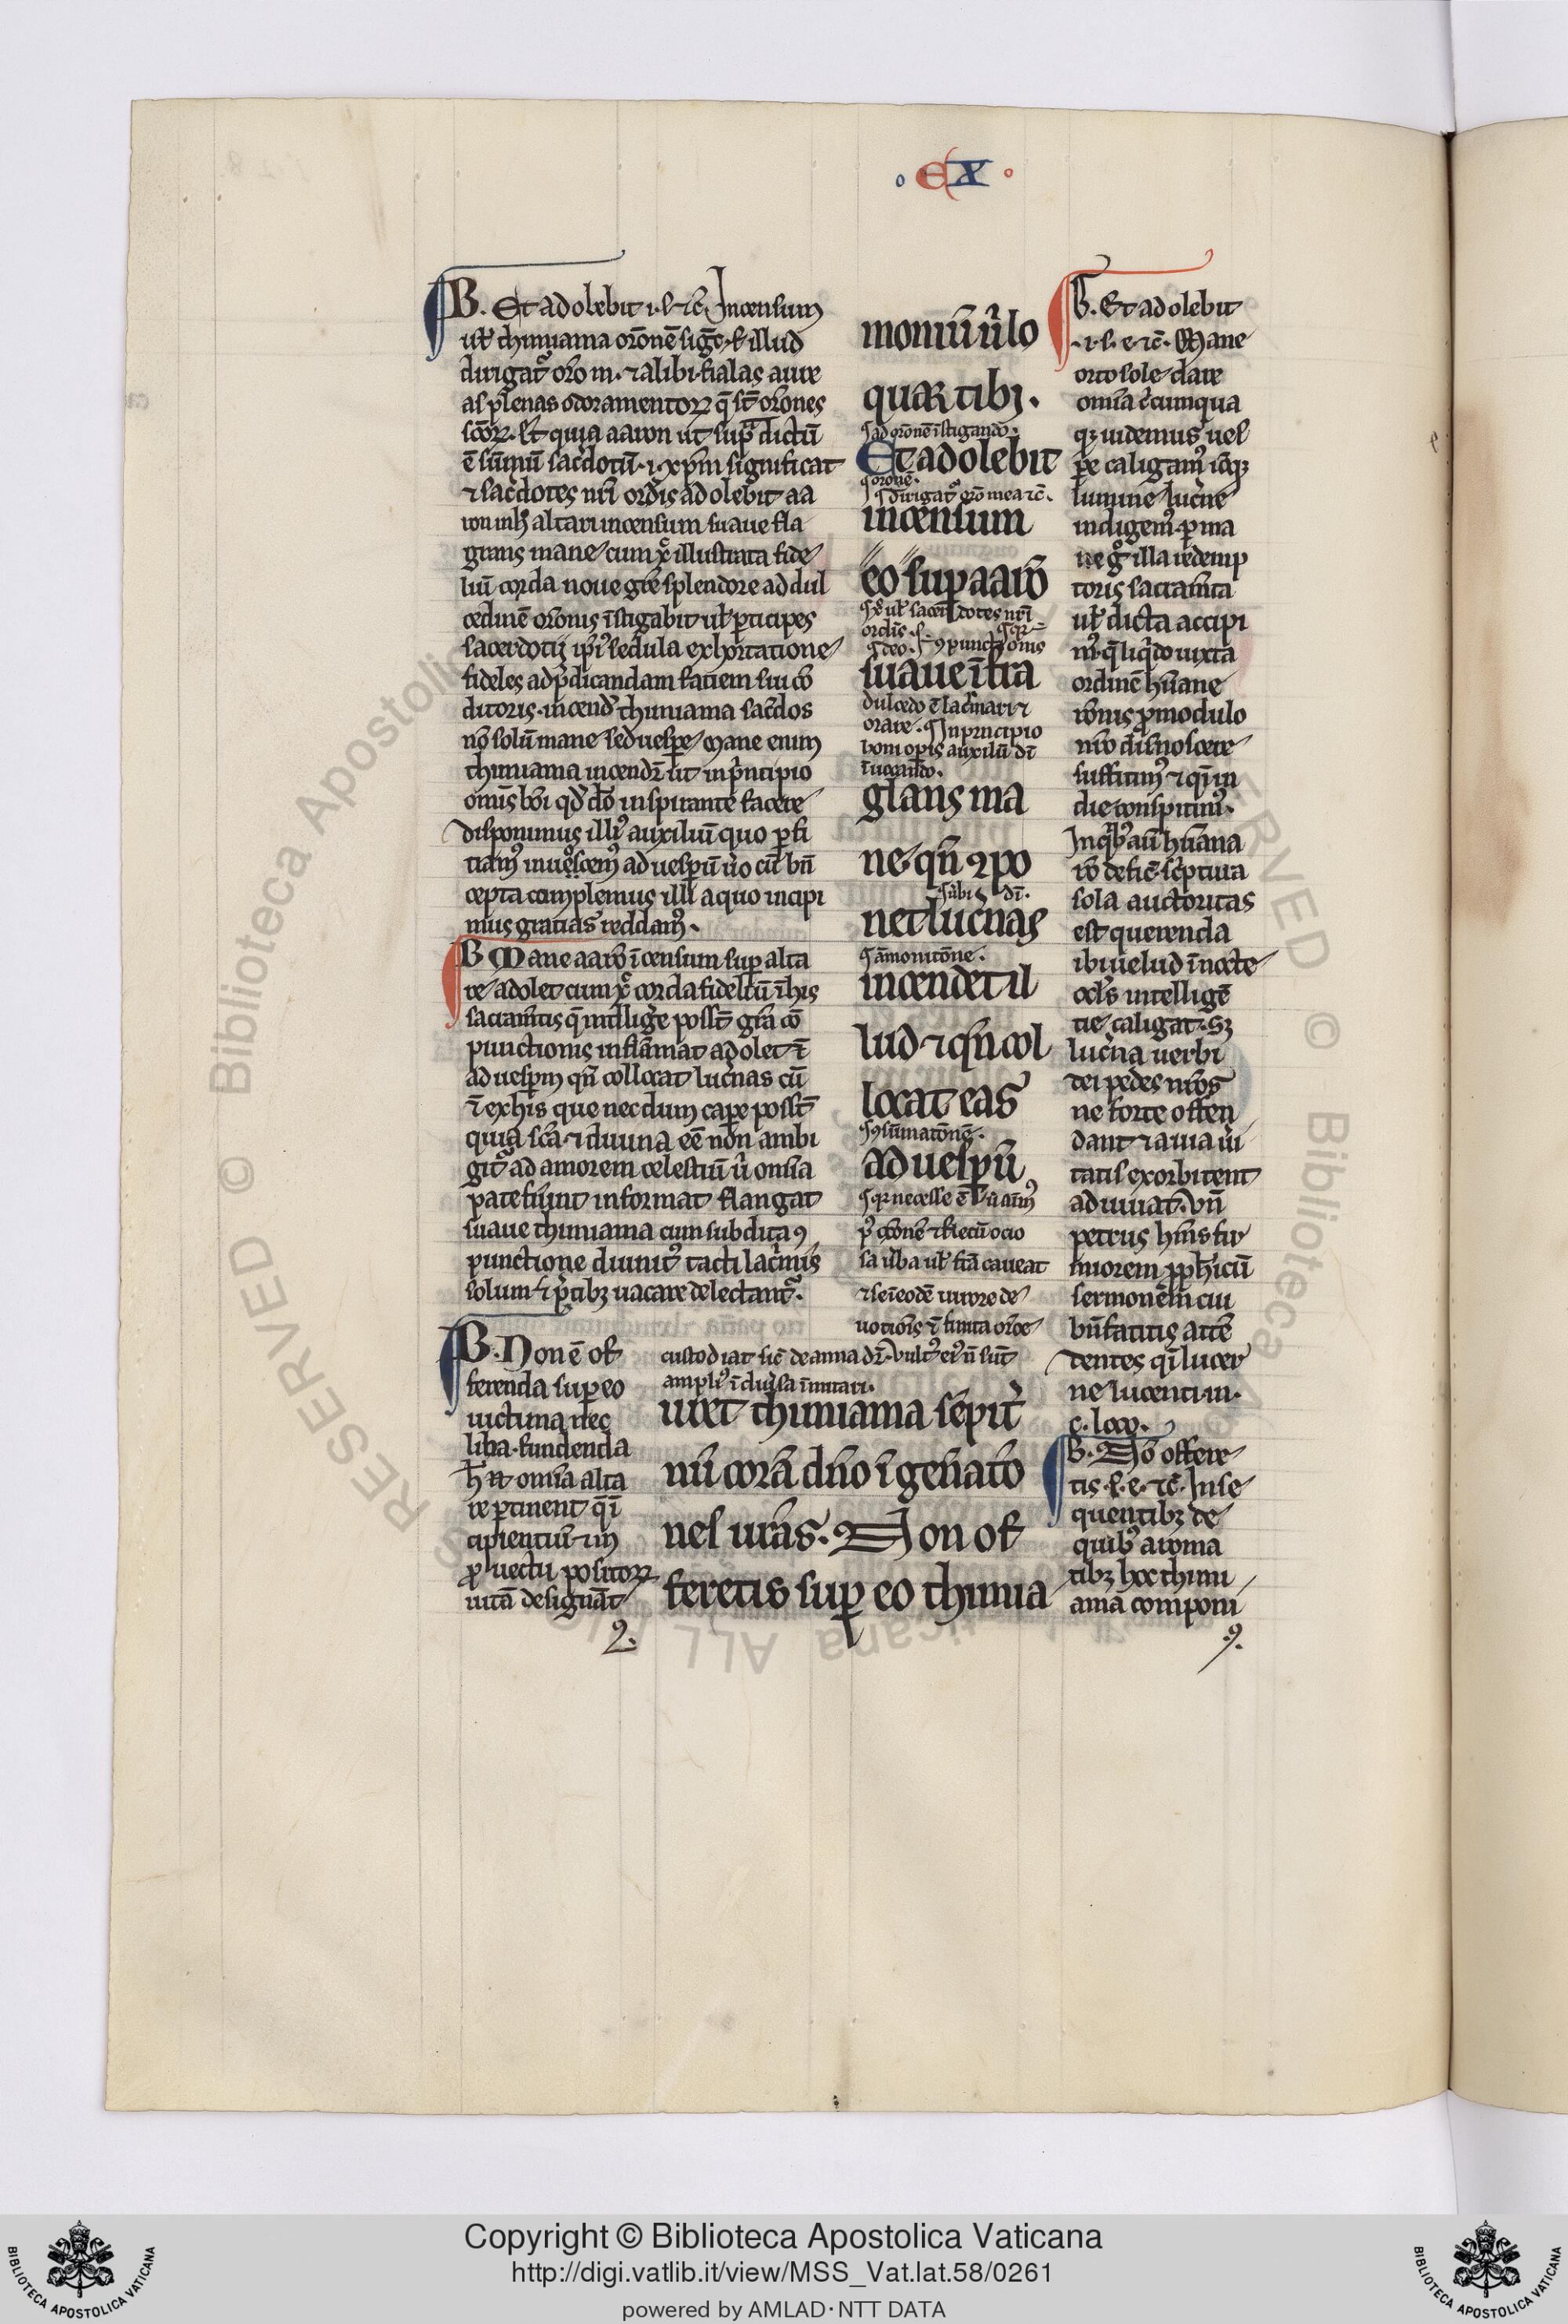 EX
B. Et adolebit .i. s. ⁊c̄. Incensum
ut̄ thimiama or̄onē sig̅t. s. illud
dirigat᷑ or̄o m. ⁊ alibi. fialas aure
as plenas odoramentoꝝ q̅ st̄ or̄ones
sc̄oꝝ. Et quia aaron ut sup᷑ dictū
ē sūmū sac̄dotū .i. xp̄m significat
⁊ sac̄dotes nr̄i ordīs adolebit aa
ron in h̄ altari incensum suaue fla
grans mane cum x͞ illustrata fide
liū corda noue gr̄e splendore ad dul
cedinē or̄onis īstigabit ut̄ ꝑticipes
sacerdotij ip̄i᷒ sedula exhortatione
fideles ad p̄dicandam faciem sui cō
ditoris. incend̄ thimiama sac̄dos
nō solū mane sed uesp̄e. Mane enim
thimiama incendr̄ ut in p̄ncipio
omīs bōi qd̄ dō inspirante facere
disponimus illi᷒ auxiliū quo ꝑfi
ciam᷒ inuocem᷒ ad uesꝑū ūo cū bn̄
cepta complemus illi a quo incipi
mus gratias reddam᷒.
B Mane aarō īcensum suꝑ alta
re adolet cum x͞ corda fideliū ī his
sacram̄tis q̅ intellig̅e poss̄t gr̄a cō
punctionis inflāmat adolet ⁊̄
ad uesꝑm qn̄ collocat luc̄nas cū
⁊̄ ex his que nec dum caꝑe poss̄t
quia sc̄a ⁊ diuina eē non ambi
git᷑ ad amorem celestiū ū omīa
patefiunt informat flangat
suaue thimiama cum subdita ꝯ
punctione diuinit᷒ tacti lac̄mis
solum ⁊ p̄cibꝫ uacare delectant᷑.
B. Non ē of
ferenda suꝑ eo
uictima nec
liba. fundenda
h̄ n̄ omīa alta
re ꝑtinent q̅ ī
cipientiū ⁊ in
ꝓuectu positoꝝ
uitā designāt
ꝯ.
moniū ūlo
quar tibi.
ad or̄onē īstigando.
Et adolebit
or̄onē.
dirigat᷑ or̄o mea ⁊c̄.
incensum
eo suꝑ aarō
x͞ ut̄ sacerdotes nr̄i
ordīs.
deo. ꝯpunctionis
suaue īfra
dulcedo ē lac̄mari ⁊
orare. In principio
boni oꝑis auxiliū dī
īuocando.
glans ma
ne. qn̄ ꝯpo
sibi dī.
net luc̄nas
āmonitōne.
incendet il
lud ⁊ qn̄ col
locat eas
ꝯsūmatōnē.
ad uesꝑū
qr necesse ē ut ūū anim᷒
caueat
⁊ se ī eodē uiuore de
uotiōis
custodiat sic̄ de anna dr̄. Vult᷒ ei᷒ n̄ sūt
ampli᷒ ī diūsa īmutati.
uret thimiama sēpit̄
nū corā dn̄o ī gen̄atō
nes ur̄as. Non of
feretis suꝑ eo thimia
B. Et adolebit
.i. s. e. ⁊c̄. Mane
orto sole clare
omīa c̄cumqua
qꝫ uidemus uel
ꝑ caligam᷒ idqꝫ
lumine luc̄ne
indigem᷒. ꝑ ma
ne g͛ illa redemp
toris sacram̄ta
ut̄ dicta accipi
m᷒. q̅ liq̄do iuxta
ordinē hūane
rōnis ꝓ modulo
nr̄o dinoscere
sufficim᷒ ⁊ q̄ in
die conspicim᷒.
In qb᷒ aū hūana
rō defic̄. sc̄ptura
sola auctoritas
est querenda
oc̄ls intelligē
tie caligat᷑. sꝫ
luc̄na uerbi
dei pedes nr̄os
ne forte offen
dant ⁊ a uia ūi
tatis exorbitent
adiuuat. Vn̄
petrus
sermonem cui
bn̄ facitis attē
dentes q̄ i lucer
ne lucenti. in.
c. loco.
B. Nō offere
tis. s. e. ⁊c̄. In se
quentibꝫ de
quib᷒ aroma
tibꝫ hoc thimi
ama componi
.ꝯ.
Copyright © Biblioteca Apostolica Vaticana
http://digi.vatlib.it/view/MSS_Vat.lat.58/0261
powered by AMLAD · NTT DATA
BIBLIOTECA APOSTOLICA VATICANA
BIBLIOTECA APOSTOLICA VATICANA